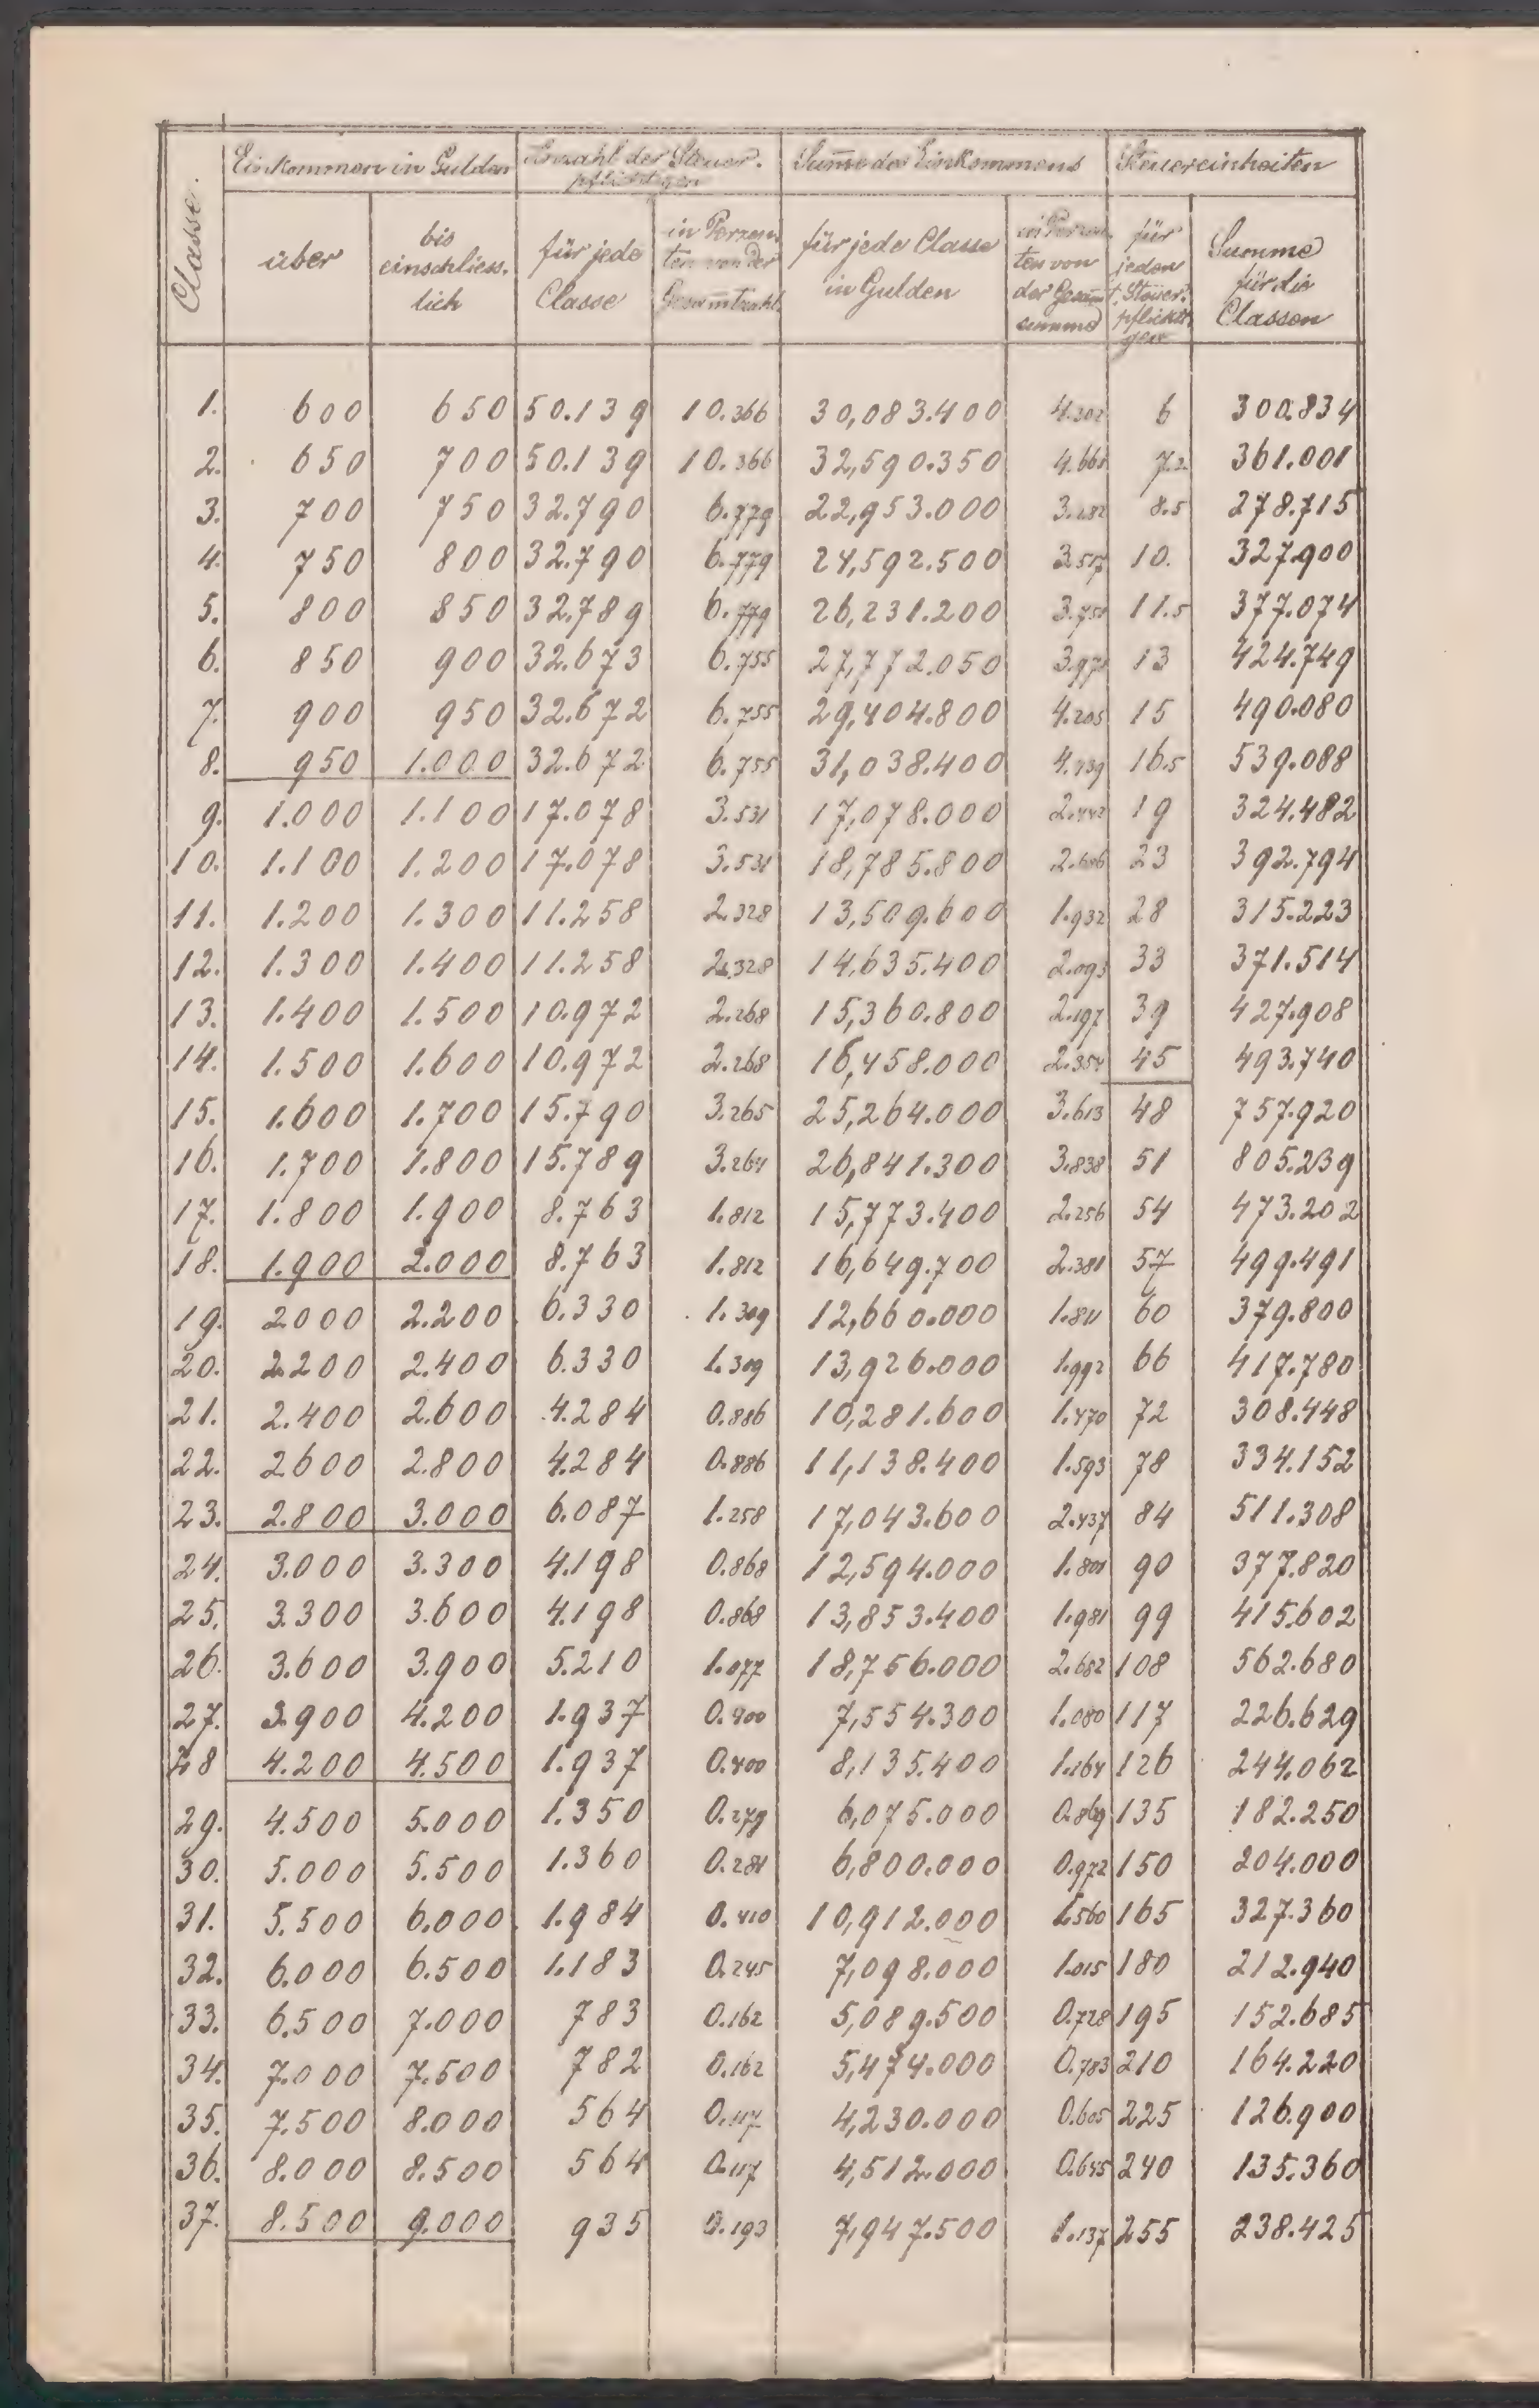 Classe.
Einkommen in Gulden
Anzahl der Steuer-
pflichtigen
Summe des Einkommens
Steuereinheiten
über
bis
einschliess-
lich
für jede
Classe
in Perzen-
ten von der
Gesammtzahl
für jede Classe
in Gulden
in Perzen-
ten von
der Gesammt-
summe
für
jeden
Steuer-
pflichti-
gen
Summe
für die
Classen
1. 600 650 50.139 10.366 30,083.400 4.302 6 300.834
2. 650 700 50.139 10.366 32,590.350 4.661 7.2 361.001
3. 700 750 32.790 6.779 22,953.000 3.282 8.5 278.715
4. 750 800 32.790 6.779 24,592.500 3.517 10. 327.900
5. 800 850 32.789 6.779 26,231.200 3.751 11.5 377.074
6. 850 900 32.673 6.755 27,772.050 3.971 13 424.749
7. 900 950 32.672 6.755 29,404.800 4.205 15 490.080
8. 950 1.000 32.672 6.755 31,038.400 4.439 16.5 539.088
9. 1.000 1.100 17.078 3.531 17,078.000 2.442 19 324.482
10. 1.100 1.200 17.078 3.531 18,785.800 2.686 23 392.794
11. 1.200 1.300 11.258 2.328 13,509.600 1.932 28 315.223
12. 1.300 1.400 11.258 2.328 14,635.400 2.093 33 371.514
13. 1.400 1.500 10.972 2.268 15,360.800 2.197 39 427.908
14. 1.500 1.600 10.972 2.268 16,458.000 2.354 45 493.740
15. 1.600 1.700 15.790 3.265 25,264.000 3.613 48 757.920
16. 1.700 1.800 15.789 3.264 26,841.300 3.838 51 805.239
17. 1.800 1.900 8.763 1.812 15,773.400 2.256 54 473.202
18. 1.900 2.000 8.763 1.812 16,649.700 2.381 57 499.491
19. 2000 2.200 6.330 1.309 12,660.000 1.811 60 379.800
20. 2.200 2.400 6.330 1.309 13,926.000 1.992 66 417.780
21. 2.400 2.600 4.284 0.886 10,281.600 1.470 72 308.448
22. 2600 2.800 4.284 0.886 11,138.400 1.593 78 334.152
23. 2.800 3.000 6.087 1.258 17,043.600 2.437 84 511.308
24. 3.000 3.300 4.198 0.868 12,594.000 1.801 90 377.820
25. 3.300 3.600 4.198 0.868 13,853.400 1.981 99 415.602
26. 3.600 3.900 5.210 1.077 18,756.000 2.682 108 562.680
27. 3.900 4.200 1.937 0.400 7,554.300 1.080 117 226.629
28 4.200 4.500 1.937 0.400 8,135.400 1.164 126 244.062
29. 4.500 5.000 1.350 0.279 6,075.000 0.869 135 182.250
30. 5.000 5.500 1.360 0.281 6,800.000 0.972 150 204.000
31. 5.500 6.000 1.984 0.410 10,912.000 1.560 165 327.360
32. 6.000 6.500 1.183 0.245 7,098.000 1.015 180 212.940
33. 6.500 7.000 783 0.162 5,089.500 0.728 195 152.685
34. 7.000 7.500 782 0.162 5,474.000 0.783 210 164.220
35. 7.500 8.000 564 0.117 4,230.000 0.605 225 126.900
36. 8.000 8.500 564 0.117 4,512.000 0.645 240 135.360
37. 8.500 9.000 935 0.193 7,947.500 1.137 255 238.425